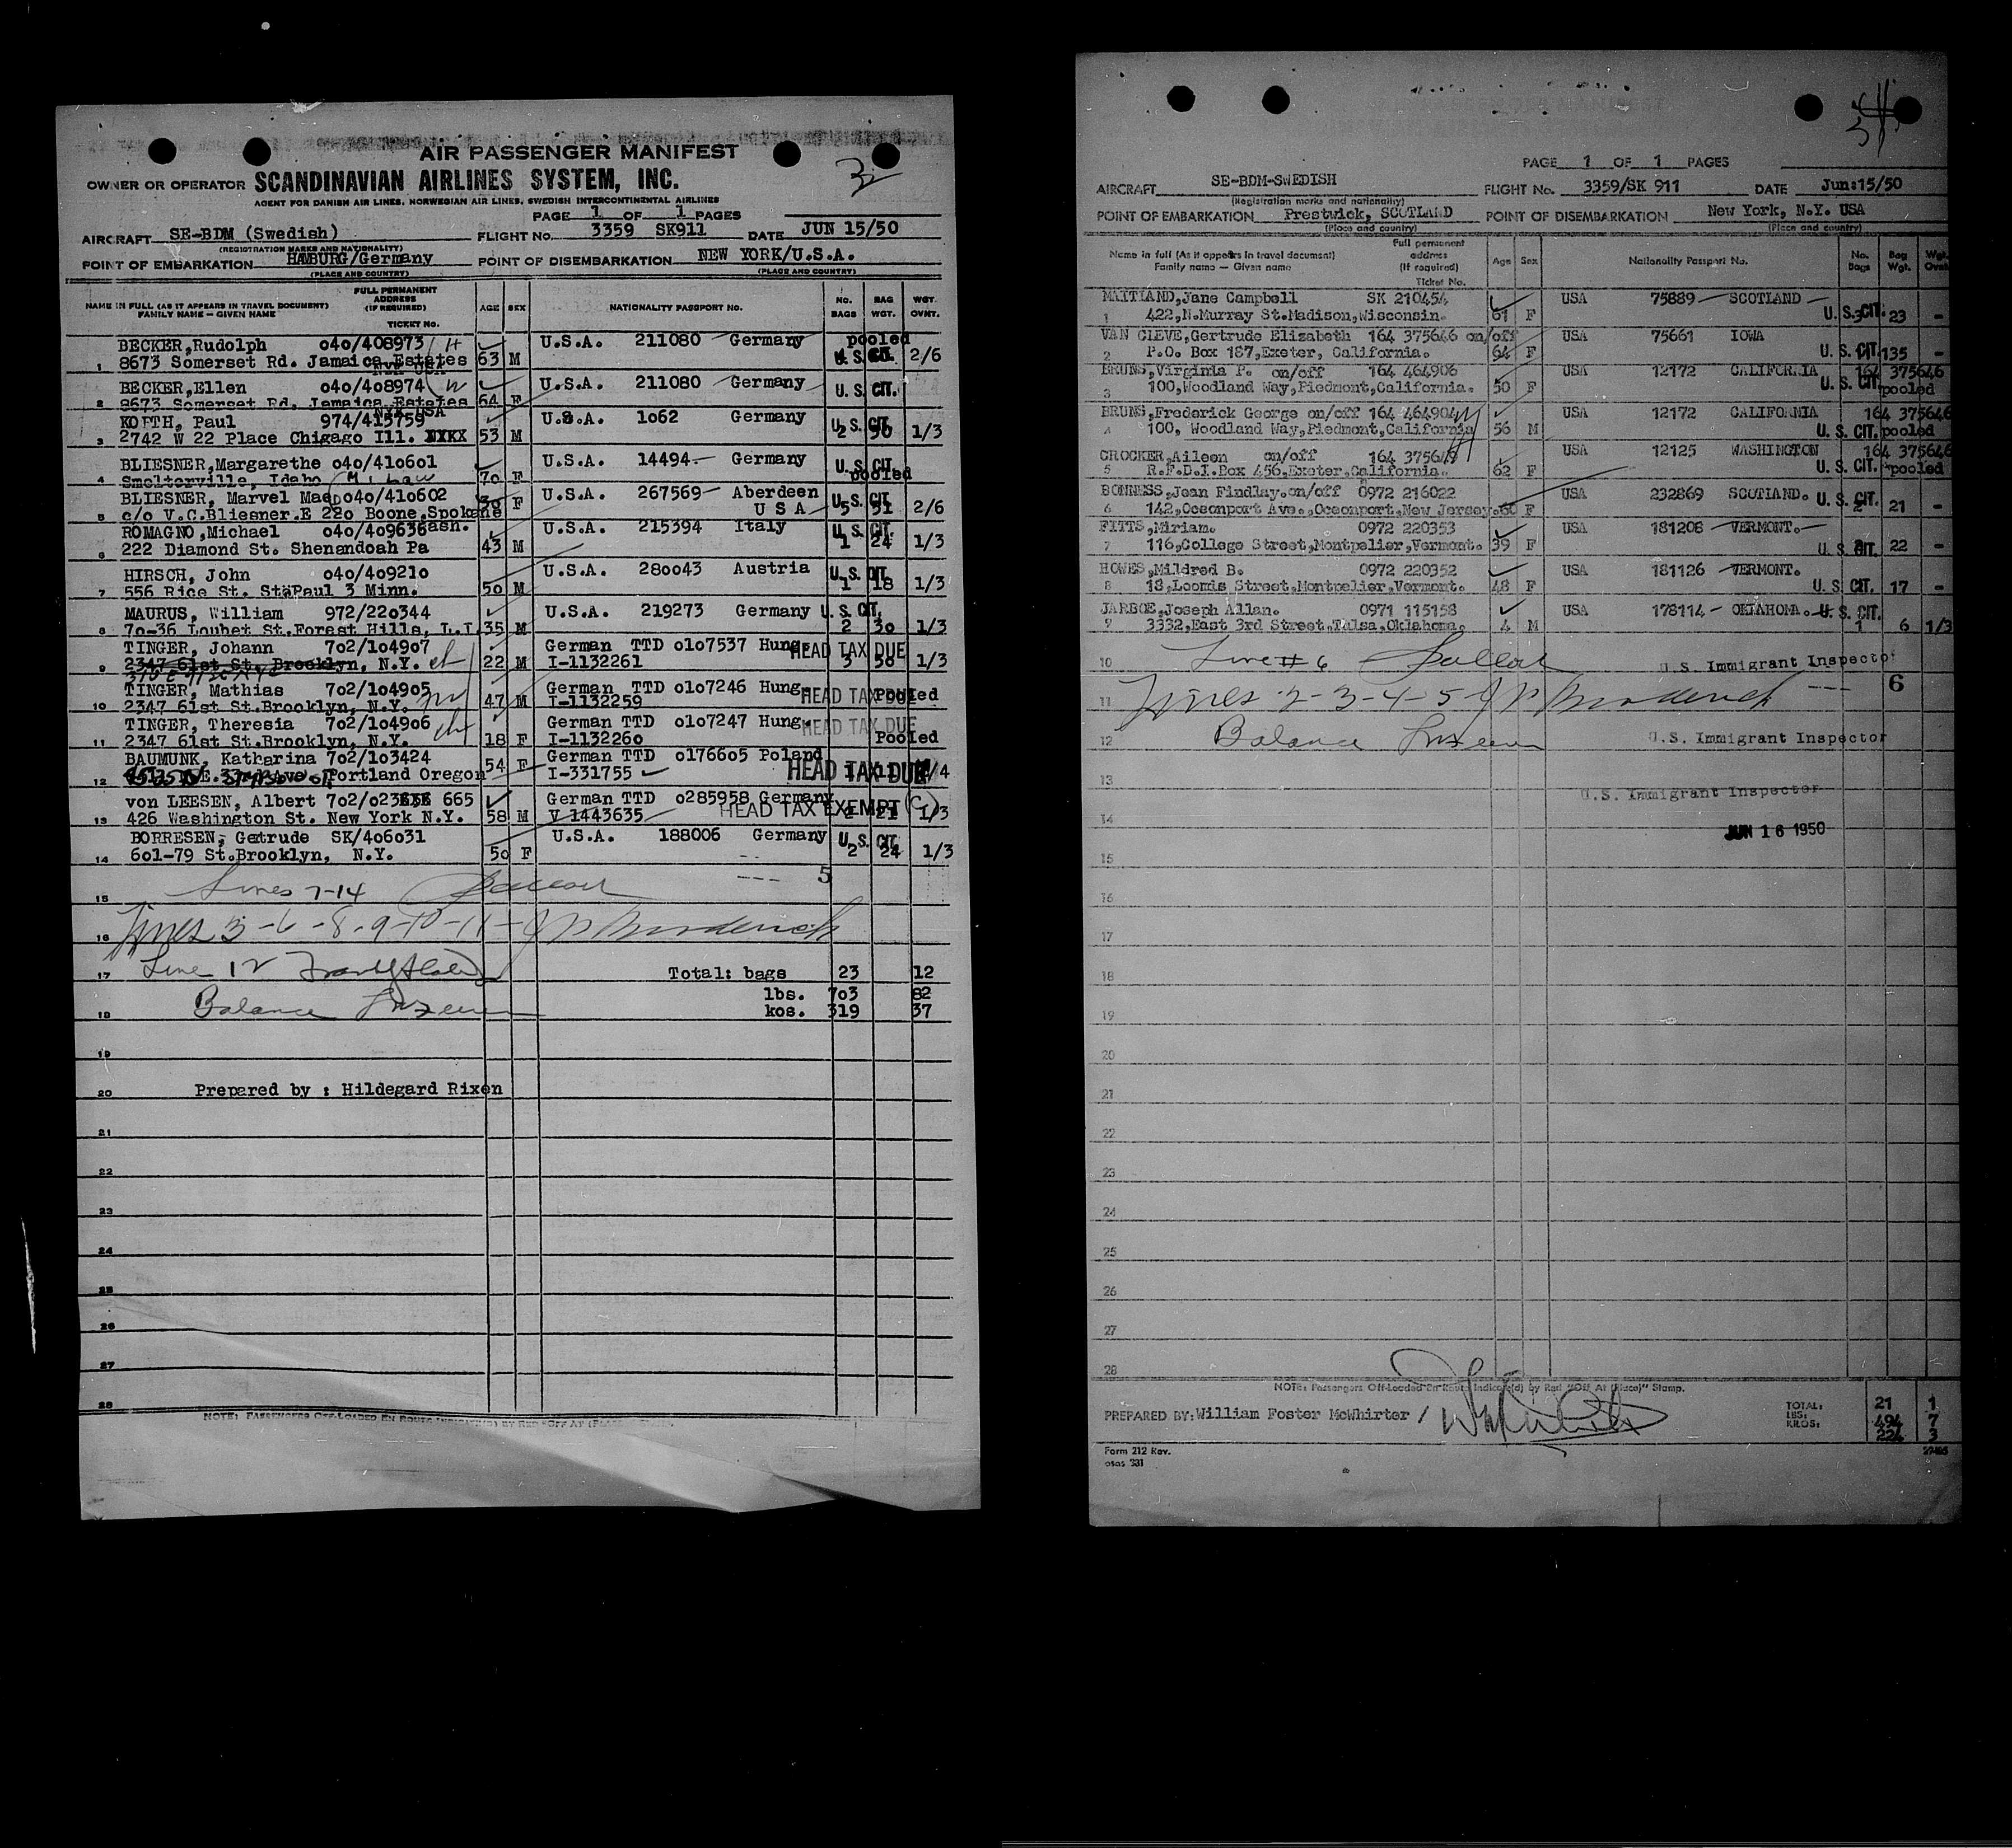 AIR PASSENGER MANIFEST
32
OWNER OR OPERATOR SCANDINAVIAN AIRLINES SYSTEM, INC.
AGENT FOR DANISH AIR LINES, NORWEGIAN AIR LINES, SWEDISH INTERCONTINENTAL AIRLINES
PAGE 1 OF 1 PAGES
AIRCRAFT SE-BDM (Swedish) FLIGHT No. 3359 SK911 DATE JUN 15/50
(REGISTRATION MARKS AND NATIONALITY)
POINT OF EMBARKATION HAMBURG/Germany POINT OF DISEMBARKATION NEW YORK/U.S.A.
(PLACE AND COUNTRY) (PLACE AND COUNTRY)
NAME IN FULL (AS IT APPEARS IN TRAVEL DOCUMENT) FAMILY NAME – GIVEN NAME FULL PERMANENT ADDRESS (IF REQUIRED) TICKET No. AGE SEX NATIONALITY PASSPORT NO. NO. BAGS BAG WGT. WGT. OVNT.
BECKER,Rudolph o4o/4o8973 H U.S.A. 211080 Germany pooled
1 8673 Somerset Rd. Jamaica Estates 63 M U.S. CIT. 2/6
NYK USA
BECKER,Ellen o4o/4o8974 W U.S.A. 211080 Germany U.S. CIT.
2 8673 Somerset Rd. Jamaica Estates 64 F
NYK USA
KORTH, Paul 974/415759 U.S.A. 1o62 Germany U.S. CIT.
3 2742 W 22 Place Chigago Ill. 53 M 2 50 1/3
BLIESNER,Margarethe o4o/41o6o1 U.S.A. 14494 Germany U.S. CIT.
4 Smelterville, Idaho M. Law 7o F pooled
BLIESNER, Marvel Mae o4o/41o602 30 F U.S.A. 267569 Aberdeen U.S. CIT
5 c/o V.C.Bliesner.E 22o Boone,Spokane U S A 5 51 2/6
Wash.
ROMAGNO,Michael o4o/4o9636 U.S.A. 215394 Italy U.S. CIT.
6 222 Diamond St. Shenandoah Pa 43 M 1 24 1/3
HIRSCH, John o4o/4o921o U.S.A. 280043 Austria U.S. CIT.
7 556 Rice St. St.Paul 3 Minn. 5o M 1 18 1/3
MAURUS, William 972/22o344 U.S.A. 219273 Germany U.S. CIT.
8 7o-36 Loubet St.Forest Hills, L.I. 35 M 2 3o 1/3
TINGER, Johann 7o2/1o49o7 German TTD o1o7537 Hung. HEAD TAX DUE
9 2347 61st St. Brooklyn, N.Y. ch 22 M I-1132261 3 50 1/3
TINGER, Mathias 7o2/1o49o5 German TTD o1o7246 Hung. HEAD TAX DUE
10 2347 61st St.Brooklyn, N.Y. 47 M I-1132259 Pooled
TINGER, Theresia 7o2/1o49o6 German TTD o1o7247 Hung. HEAD TAX DUE
11 2347 61st St.Brooklyn, N.Y. ch 18 F I-113226o Pooled
BAUMUNK, Katharina 7o2/1o3424 54 F German TTD o1766o5 Poland
12 Portland Oregon I-331755 HEAD TAX DUE
von LEESEN, Albert 7o2/o23 665 German TTD o285958 Germany
13 426 Washington St. New York N.Y. 58 M V 1443635 HEAD TAX EXEMPT (G) 2 21 1/3
BORRESEN, Gertrude SK/4o6o31 U.S.A. 188006 Germany U.S. CIT.
14 6o1-79 St.Brooklyn, N.Y. 5o F 2 24 1/3
--- 5
15 Lines 7-14
16 Lines 3-6-8-9-10-11- J P Broderick
17 Line 12 Total: bags 23 12
lbs. 703 82
18 Balance kos. 319 37
19
20 Prepared by : Hildegard Rixen
21
22
23
24
25
26
27
28
NOTE: PASSENGERS OFF-LOADED EN ROUTE INDICATED BY RED "OFF AT (PLACE)" STAMP.
PAGE 1 OF 1 PAGES
AIRCRAFT SE-BDM-SWEDISH FLIGHT No. 3359/SK 911 DATE Jun:15/50
(Registration marks and nationality)
POINT OF EMBARKATION Prestwick, SCOTLAND POINT OF DISEMBARKATION New York, N.Y. USA
(Place and country) (Place and country)
Name in full (As it appears in travel document) Family name — Given name Full permanent address (If required) Ticket No. Age Sex Nationality Passport No. No. Bags Bag Wgt. Wgt. Ovnt.
MAITLAND,Jane Campbell SK 210454 USA 75889 SCOTLAND
1 422,N.Murray St.Madison,Wisconsin. 61 F U.S. CIT. 3 23 -
VAN CLEVE,Gertrude Elizabeth 164 375646 on/off USA 75661 IOWA
2 P.O. Box 187,Exeter, California. 64 F U.S. CIT. 135 -
BRUNS,Virginia P. on/off 164 464906 USA 12172 CALIFORNIA 164 375646
3 100,Woodland Way,Piedmont,California. 50 F U.S. CIT. pooled
BRUNS,Frederick George on/off 164 464904 USA 12172 CALIFORNIA 164 375646
4 100, Woodland Way,Piedmont,California 56 M U.S. CIT. pooled
CROCKER,Aileen on/off 164 375648 USA 12125 WASHINGTON 164 375646
5 R.F.D.I.Box 456,Exeter,California. 62 F U.S. CIT. pooled
BONNESS,Jean Findlay.on/off 0972 216022 USA 232869 SCOTLAND. U.S. CIT.
6 142,Oceanport Ave.,Oceanport,New Jersey. 60 F 2 21 -
FITTS,Miriam. 0972 220353 USA 181208 VERMONT.
7 116,College Street,Montpelier,Vermont. 39 F U.S. CIT. 22 -
HOWES,Mildred B. 0972 220352 USA 181126 VERMONT.
8 18,Loomis Street,Montpelier,Vermont. 48 F U.S. CIT. 17 -
JARBOE,Joseph Allan. 0971 115158 USA 178114 OKLAHOMA. U.S. CIT.
9 3332,East 3rd Street,Tulsa,Oklahoma. 4 M 1 6 1/3
10 Line # 6 U.S. Immigrant Inspector
11 Lines 2-3-4-5- J P Broderick --- 6
12 Balance U.S. Immigrant Inspector
13
U.S. Immigrant Inspector
14 JUN 16 1950
15
16
17
18
19
20
21
22
23
24
25
26
27
28
NOTE: Passengers Off-Loaded En Route Indicate(d) by Red "Off At (Place)" Stamp.
PREPARED BY: William Foster McWhirter /
TOTAL: 21 1
LBS: 494 7
KILOS: 224 3
Form 212 Rev.
osas 331